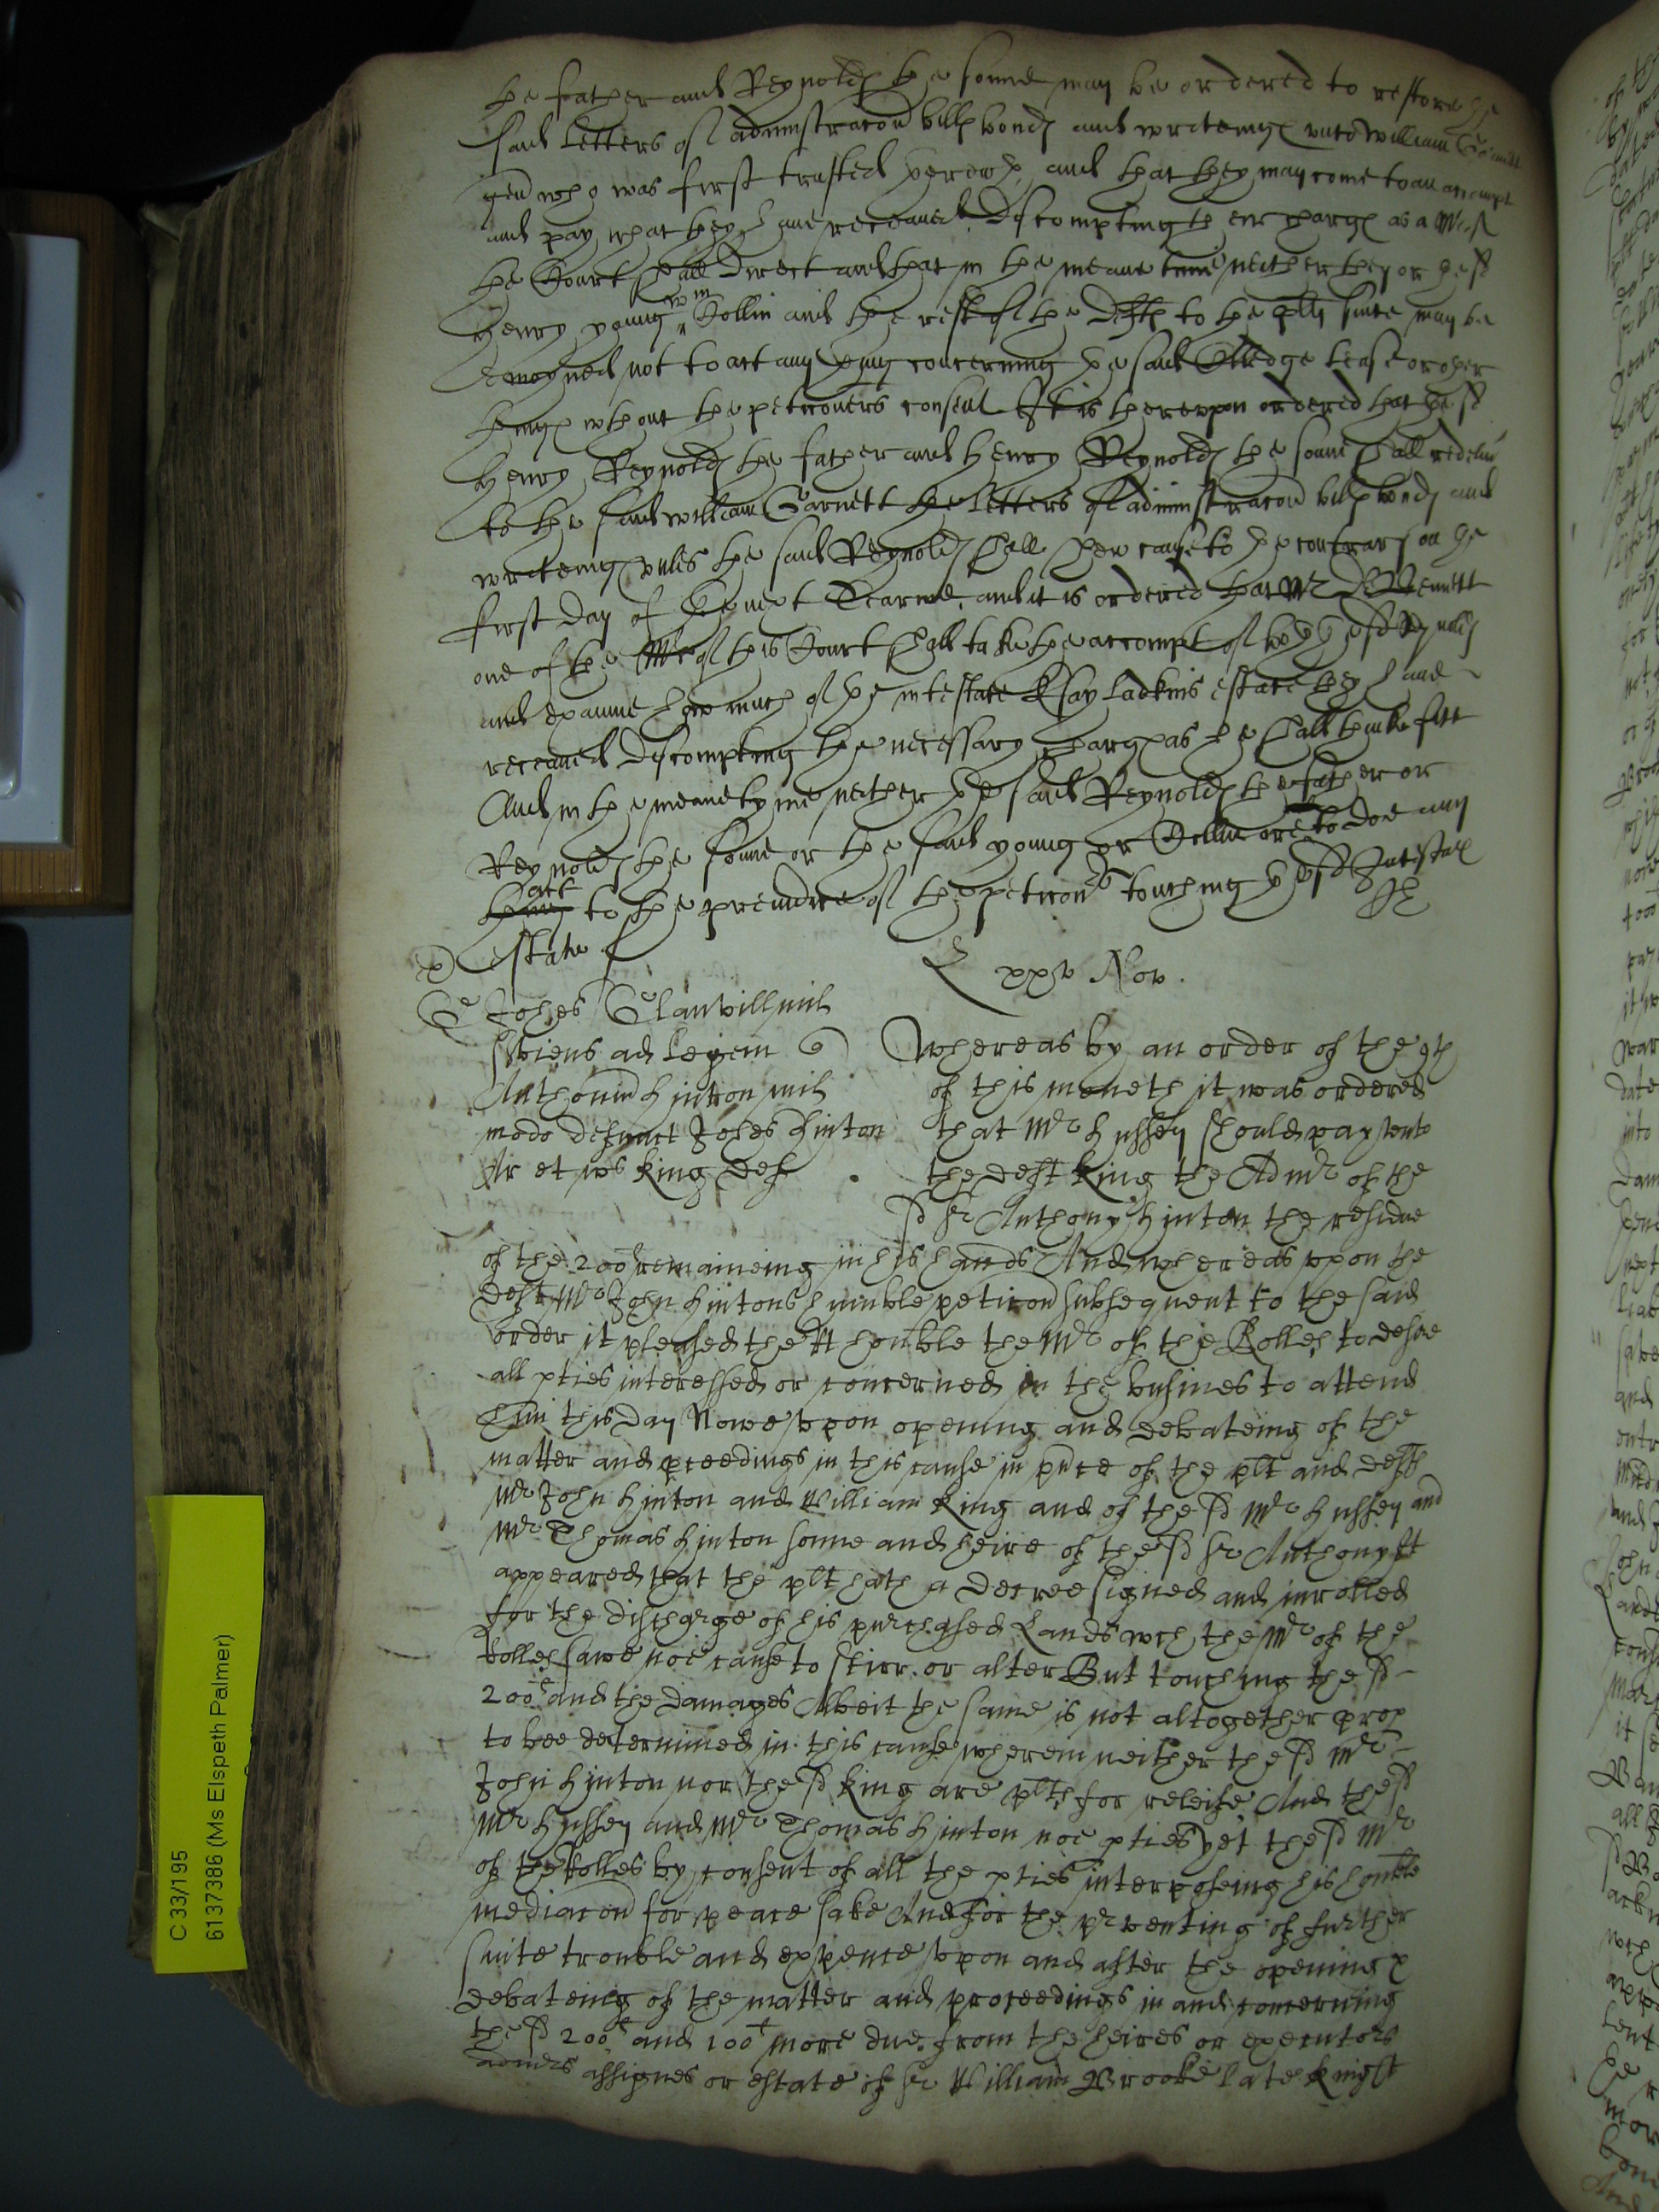 the father and Reynold the sonne may be ordered to restore the
said Letters of administracon bill bond and writeing unto William Garnett
gen who was first trusted therewth and that they may come to an accompt
and pay what they have receaued discompting their charg as a Mr of
the Court shall direct and that in the meane tyme neither they or the sd
Henry young Wm Collin and the rest of the defts to the plts suite may be
Enioyned not to act any thing concerning the said Lease or other
things wthout the peticoners consent It is therevpon ordered that the sd
Henry Reynold the father and Henry Reynold the sonne shall redeliu
to the said William Garnett the Letters of administracon bill bond and
writeing vnles the said Reynold shall shew cause to the contrary on the
first day of the next Tearme, and it is ordered that Mr Dr Bennett
one of the Mrs of this Court shall take the accompt of both the sd Reynold
and examine how much of the intestate Ladkins estate they haue
receaued discompting the necessary charg as he shall thinke fitt
And in the meane tyme neither the said Reynold the father or
Reynold the sonne or the said young or Collin are to doe any
act
thing to the preiudice of the peticoner touching the sd Intestat
estate
xxv Nov.
Johes Glanvill mil
sviens ad Legem
Anthonium Hinton mil
modo defunct Johes Hinton
Ar et ws King Def
Whereas by an order of the 9th
of this moneth it was ordered
that Mr Hussey should pay vnto
the deft King the Admr of the
sd Sr Anthony Hinton the residue
of the 200li remaineing in his hands And whereas vpon the
deft Mr John Hintons humble peticon subsequent to the said
order it pleased the Rt honble the Mr of the Rolles to desire
all pties interessed or concerned in the busines to attend
him this day Nowe vpon opening and debateing of the
matter and pceedings in this cause in pnce of the plt and defts
Mr John Hinton and William King and of the sd Mr Hussey and
Mr Thomas Hinton sonne and heire of the sd Sr Anthony It
appeared that the plt hath a decree signed and inrolled
for the discharge of his purchased Lands wch the Mr of the
Rolles sawe noe cause to stirr or alter But touching the sd
200li and the damages Albeit the same is not altogether prop
to bee determined in this cause wherein neither the sd Mr
John Hinton nor the sd King are plts for releife And the sd
Mr Hussey and Mr Thomas Hinton noe pties yet the sd Mr
of the Rolles by consent of all the pties interposeing his honble
mediacon for peace sake And for the prventing of further
suite trouble and expence vpon and after the opening &
debateing of the matter and proceedings in and concerning
the sd 200li and 100li more due from the heires or executors
admrs assignes or estate of Sr William Brooke late Knight
C 33/195
6137386 (Ms Elspeth Palmer)